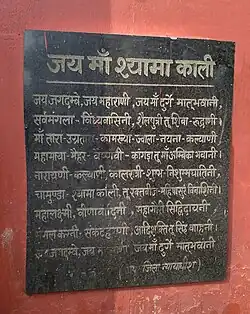 जय माँ श्यामा काली
जय जगदम्बे, जय महाराणी, जय माँ दुर्गे मातृभवानी,
सर्वमंगला - विंध्यवासिनी, शैलपुत्री तु शिवा - रुद्राणी।
माँ तारा - उग्रतारा - कामख्या - ज्वाला - नयना - कल्याणी
महामाया - मैहर - वैष्णवी - कांगड़ा तु माँ अम्बिका भवानी।
नारायणी - कल्याणी, कालरात्री - शुभ - निशुम्भघातिनी,
चामुण्डा - श्यामा काली, तु रक्तबीज - महिषासुर विनाशिनी।
महालक्ष्मी, वीणावादिनी, महागौरी सिद्धिदायनी
करनी - संकटहरणी, आदिशक्ति तु सिंह वाहनी।
जगदाम्बे, जय जय माँ दुर्गे मातृभवानी
जिला न्यायाधीश)